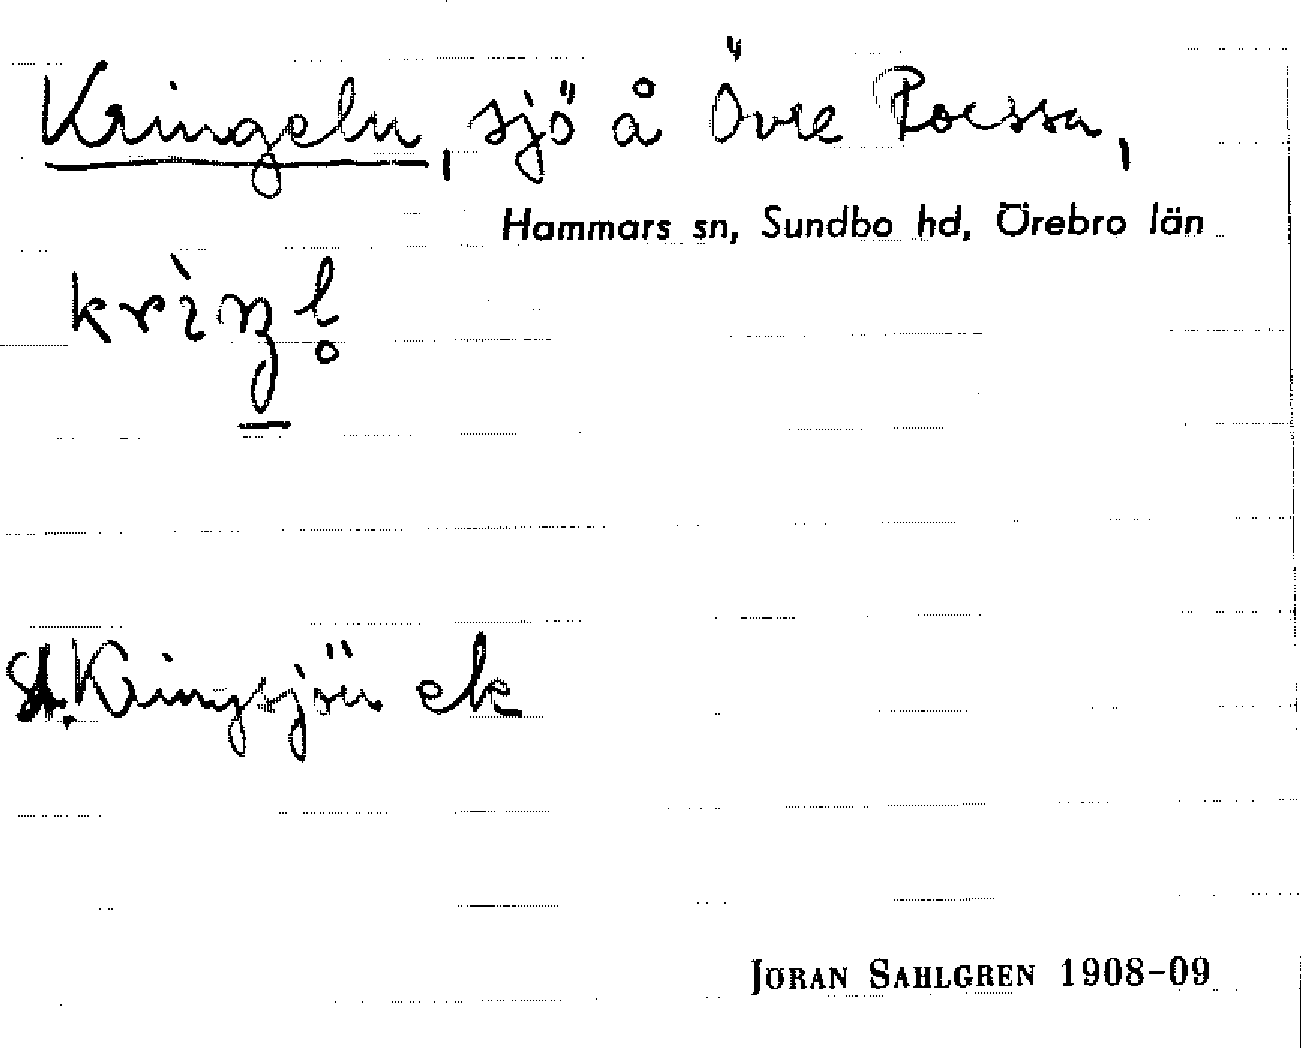 Kringeln, sjö å Övre Roessa,
Hammars sn, Sundbo hd, Örebro län
krìŋl̥
St. Kringsjön ek
JÖRAN SAHLGREN 1908-09